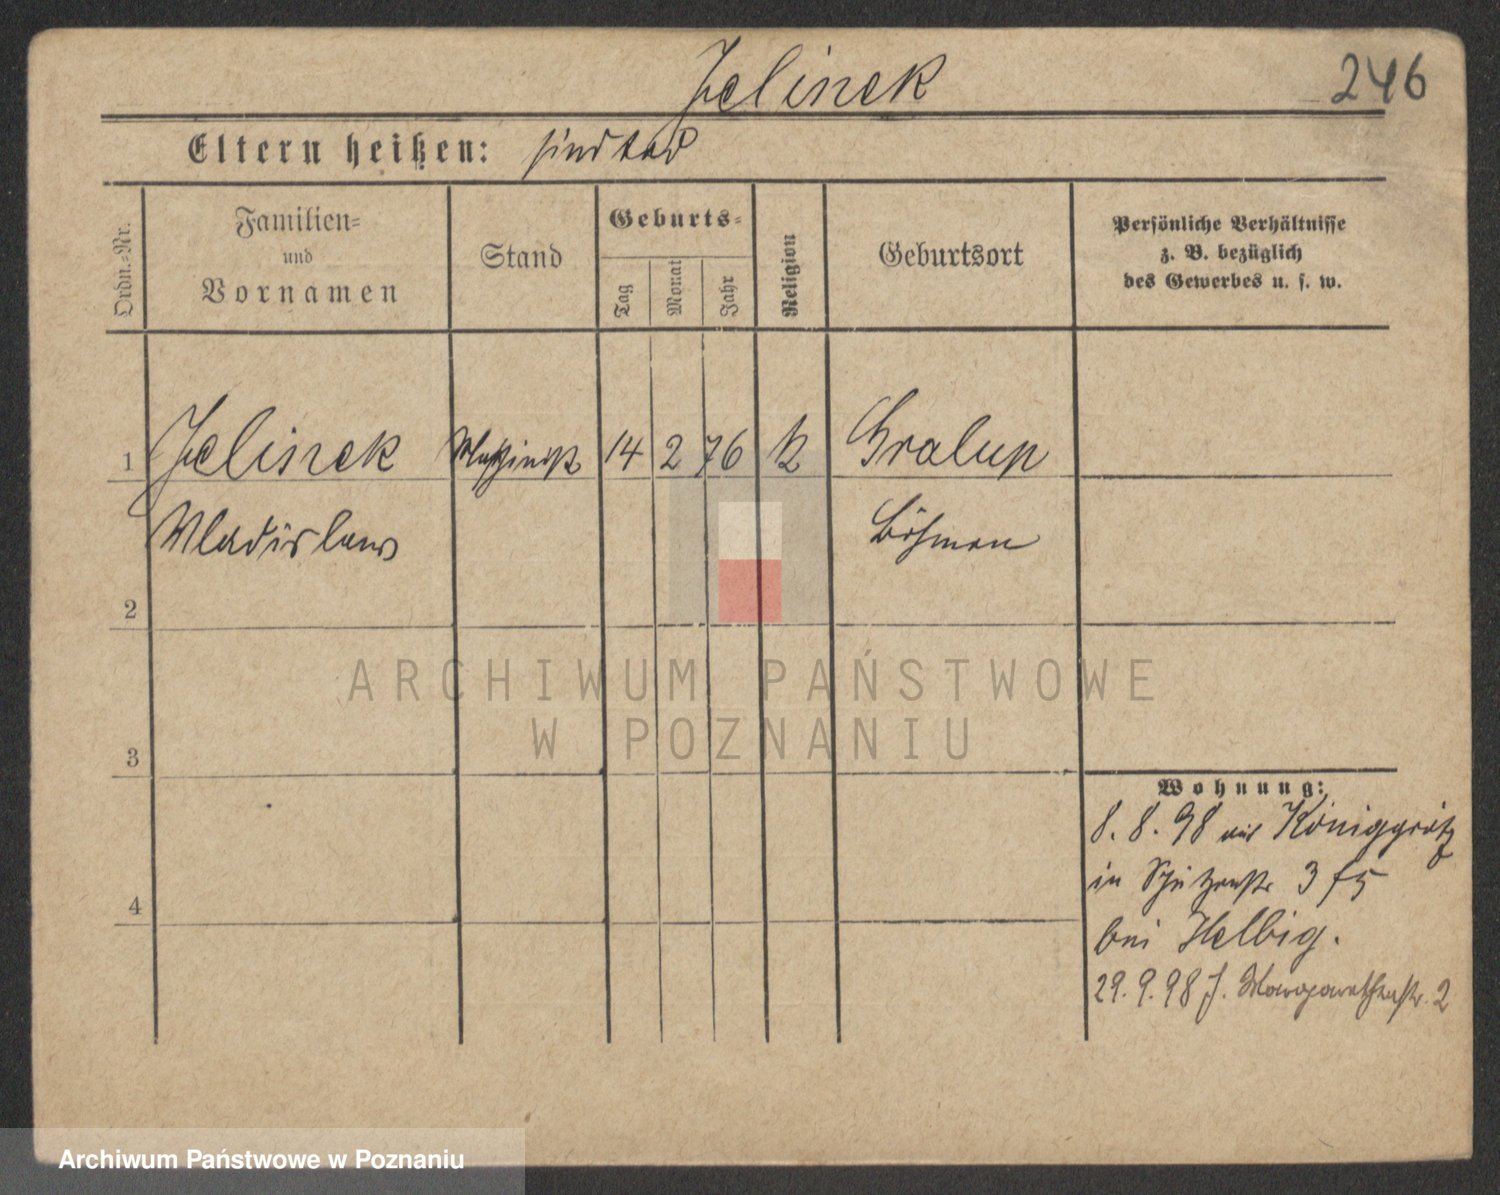 Jelinek
246
Eltern heißen: sind tod
Ordn.-Nr.
Familien-
und
Vornamen
Stand
Geburts-
Tag
Monat
Jahr
Religion
Geburtsort
Persönliche Verhältnisse
z. B. bezüglich
des Gewerbes u. s. w.
1 Jelinek 14 2 76 k Gralup
Wladislaus Böhmen
2
3
4
Wohnung:
8. 8. 98 aus Königgrätz
in Schützenstr 3
bei Helbig.
29. 9. 98 J. Margarethenstr. 2
ARCHIWUM PAŃSTWOWE
W POZNANIU
Archiwum Państwowe w Poznaniu